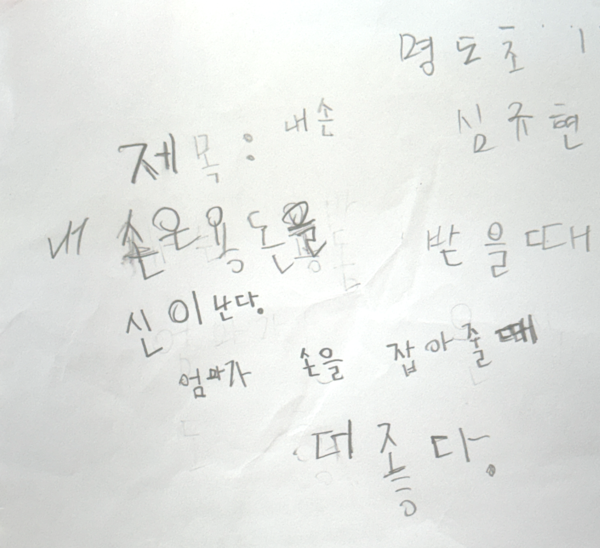 명도초 1
심규현
제목: 내손
내 손은 용돈을 받을때
신이난다.
엄마가 손을 잡아줄때
떠좋다.